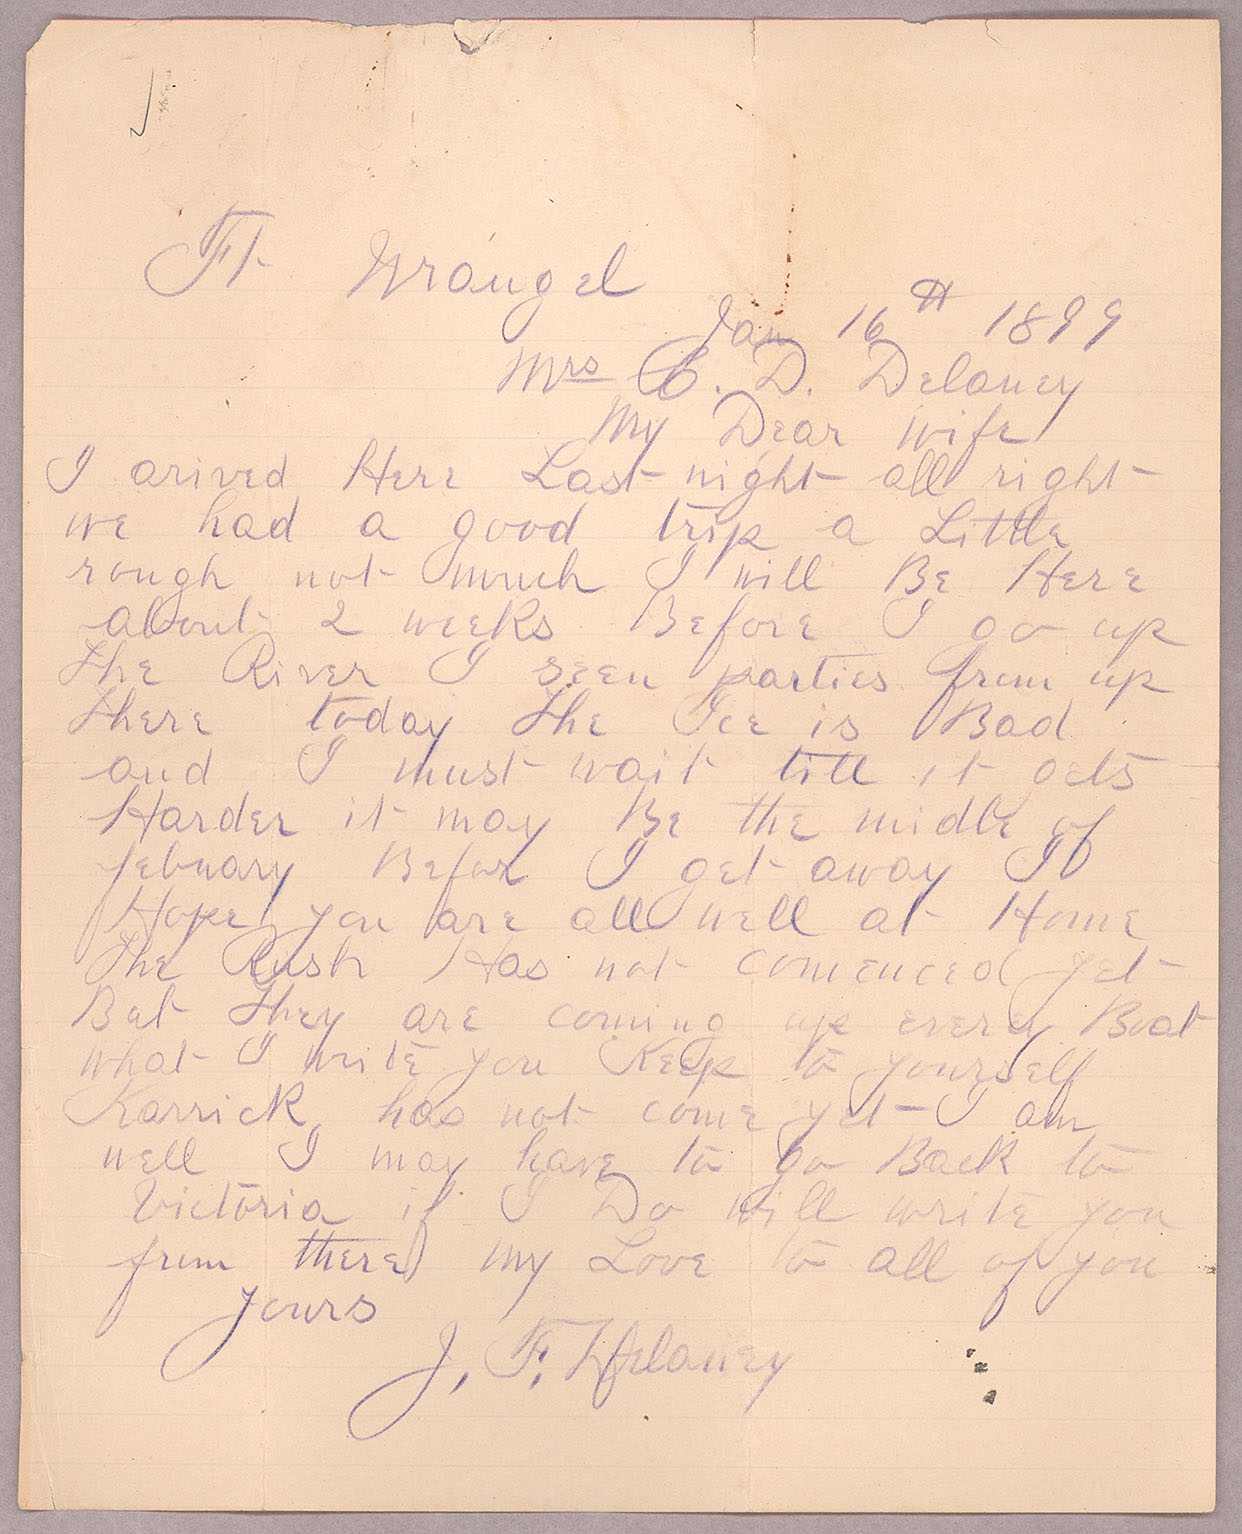 Ft Wrangel
Jan 16th 1899
Mrs C. D. Delaney
My Dear wife
I arived Here Last night all right
we had a good trip a Little
rough not much I will Be Here
about 2 weeks Before I go up
the River I seen parties from up
there today the Ice is Bad
and I must wait till it gets
Harder it may Be the midle of
febuary Befor I get away I
Hope you are all well at Home
The Rush Has not comenced yet
But they are coming up every Boat
what I write you Keep to yourself
Karrick has not come yet I am
well I may have to go Back to
Victoria if I Do will write you
from there my Love to all of you
yours
J. F. Delaney